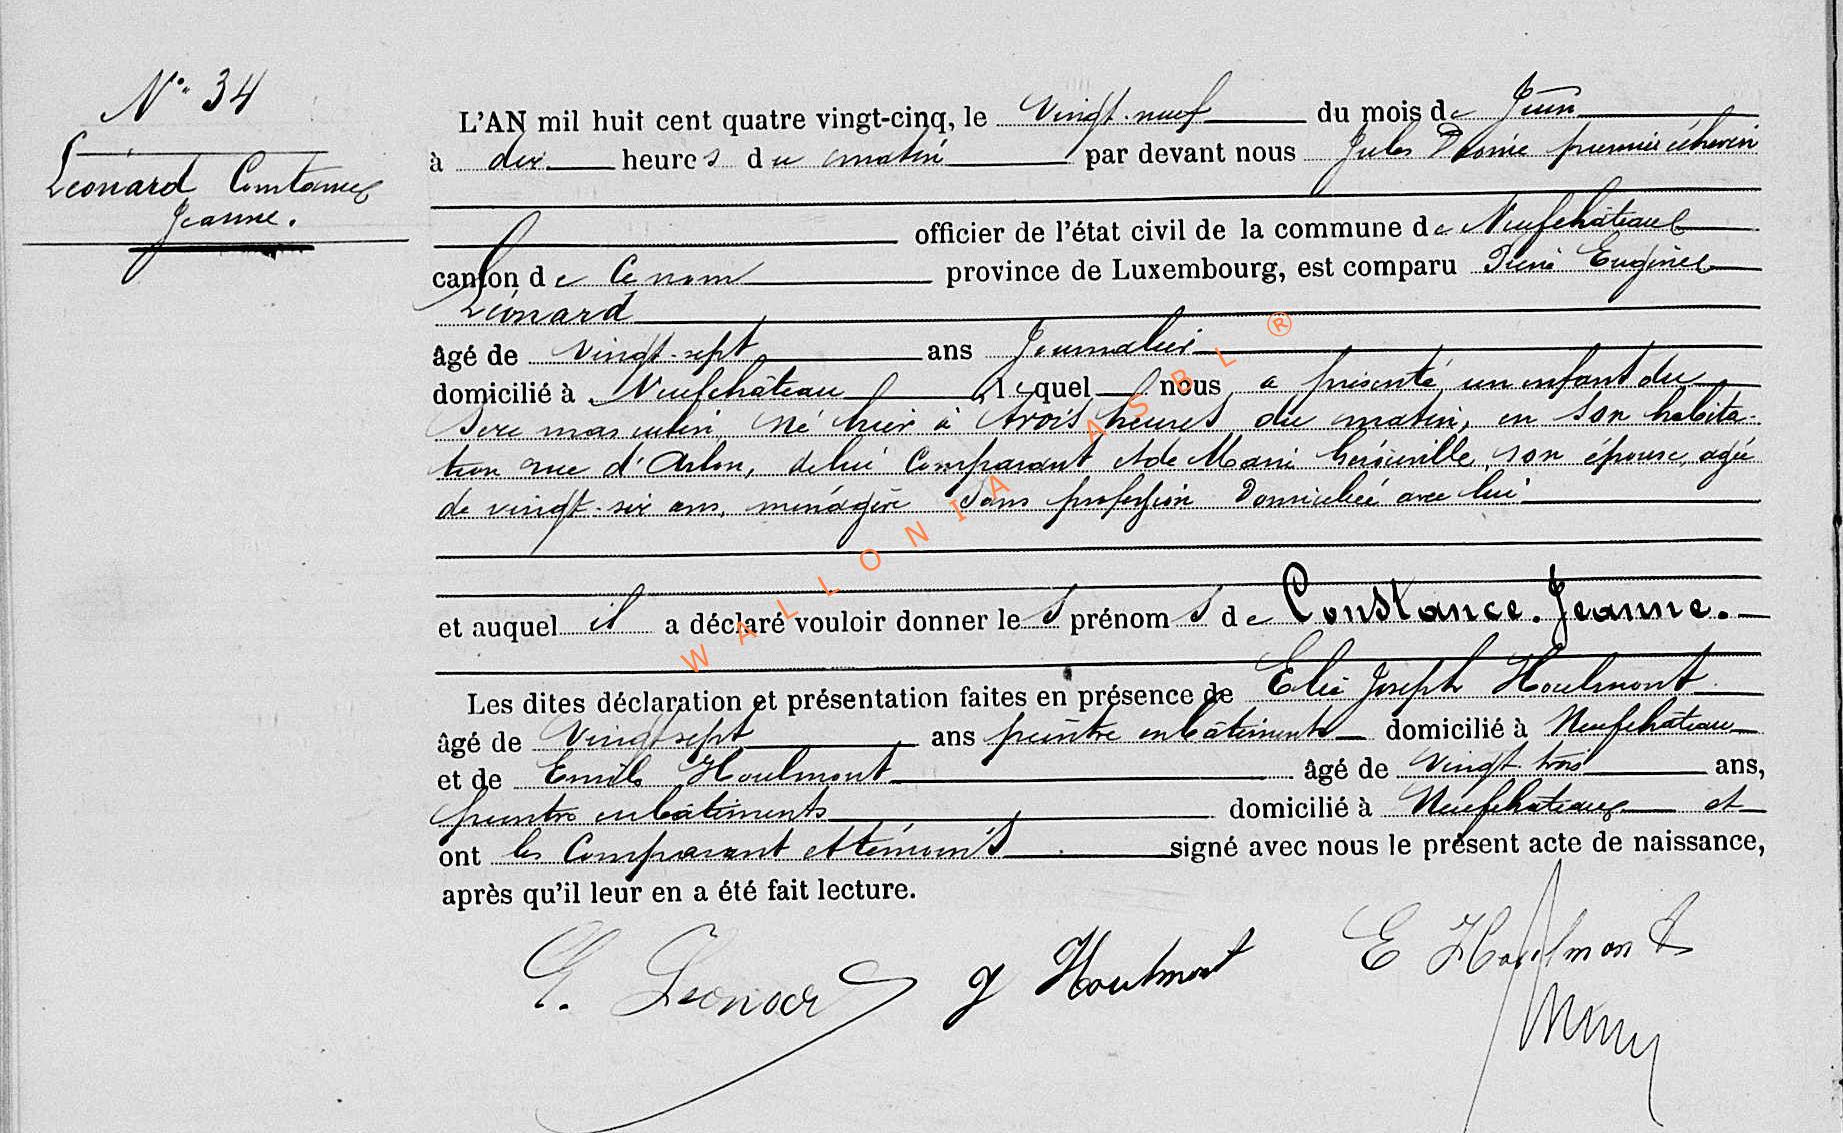 N° 34
Léonard Constance
Jeanne.
L'AN mil huit cent quatre vingt-cinq, le vingt-neuf du mois de Juin
à dix heures du matin par devant nous Jules premier échevin
officier de l'état civil de la commune de Neufchâteau
canton de ce nom province de Luxembourg, est comparu Eugène
Léonard
âgé de vingt-sept ans Journalier
domicilié à Neufchâteau lequel nous a présenté un enfant du
sexe masculin né hier à trois heures du matin, en son habita-
tion rue d'Arlon, de lui comparant et de Marie son épouse, agée
de vingt-six ans, ménagère sans profession domiciliée avec lui
et auquel il a déclaré vouloir donner le s prénom s de Constance. Jeanne.
Les dites déclaration et présentation faites en présence de Elie Joseph Houlmont
âgé de Vingt sept ans peintre en bâtiments domicilié à Neufchâteau
et de Emile Houlmont âgé de vingt trois ans,
peintre en bâtiments domicilié à Neufchateau et
ont les comparant et témoins signé avec nous le présent acte de naissance,
après qu'il leur en a été fait lecture.
E. Leonard J Houlmont E Houlmont
WALLONIA ASBL ®